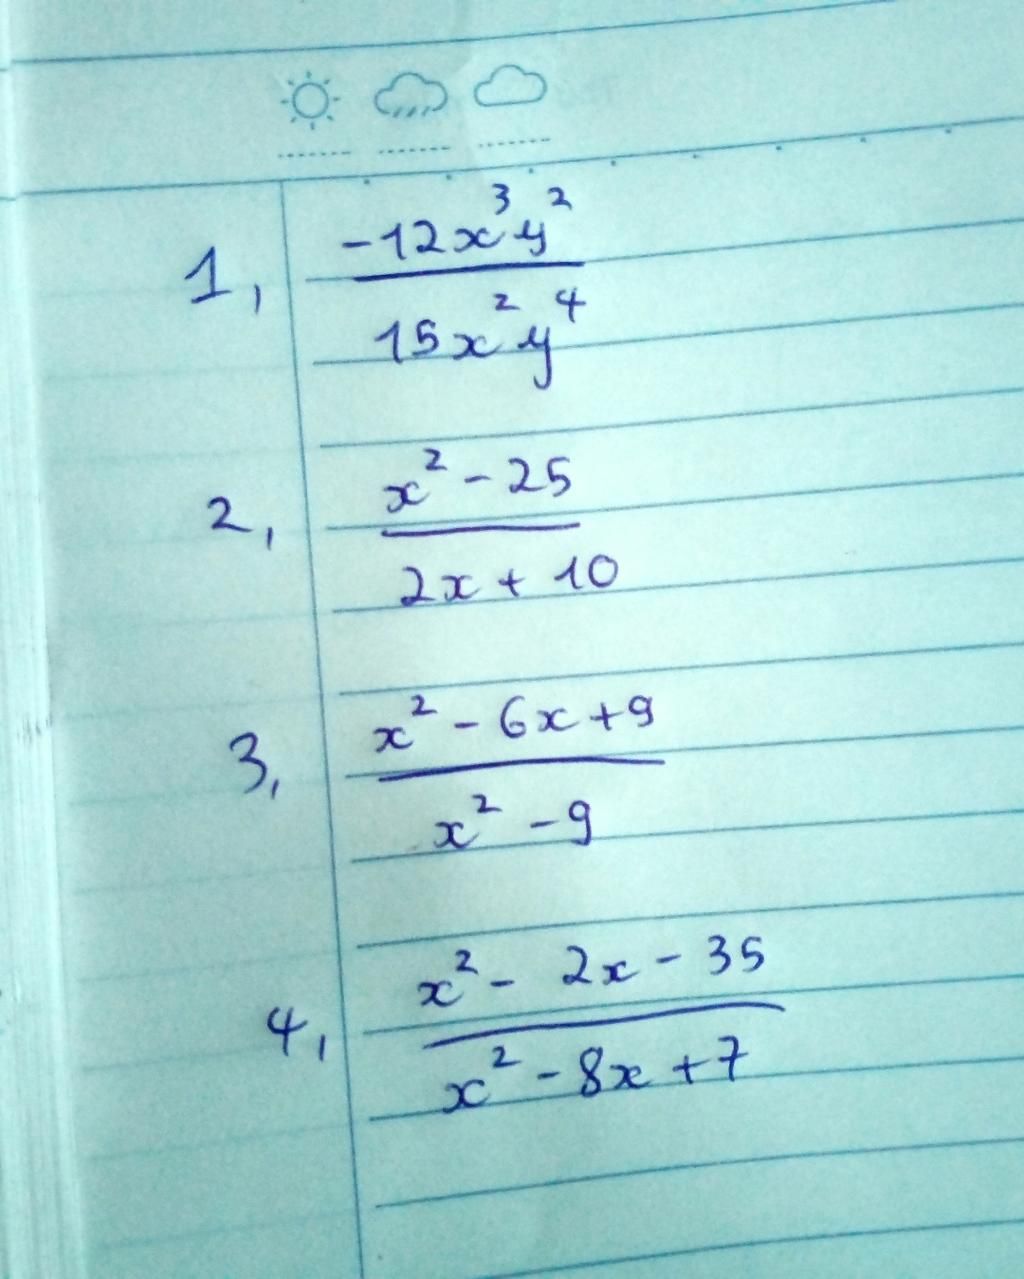 1, -12x³y²
15x²y⁴
2, x² - 25
2x + 10
3, x² - 6x + 9
x² - 9
4, x² - 2x - 35
x² - 8x + 7